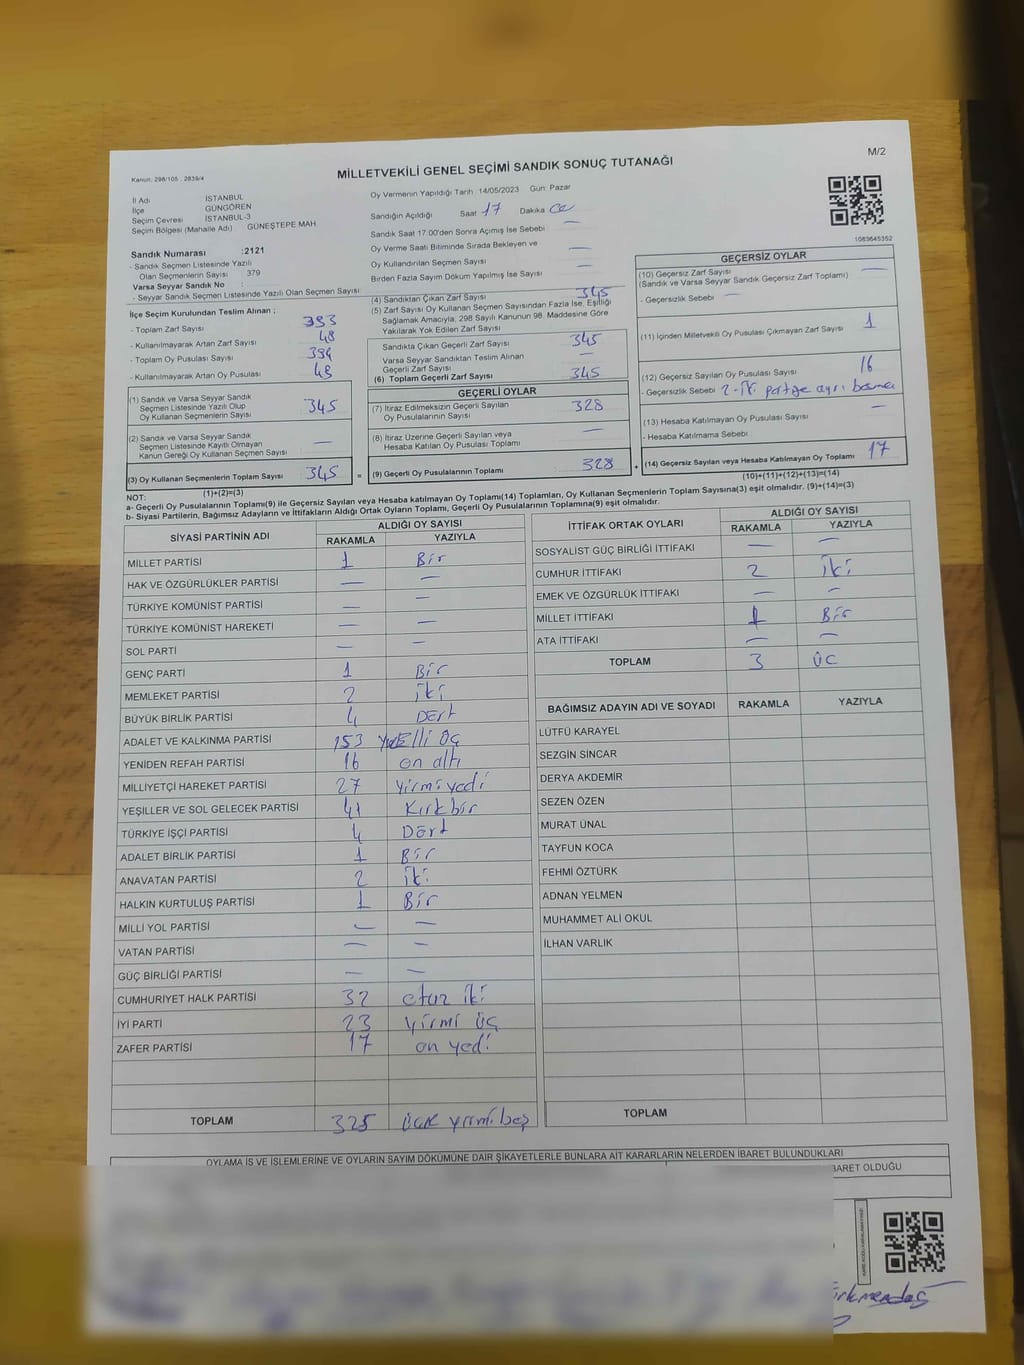 M/2
Kanun: 298/105 , 2839/4
MİLLETVEKİLİ GENEL SEÇİMİ SANDIK SONUÇ TUTANAĞI
İl Adı İSTANBUL
İlçe GÜNGÖREN
Seçim Çevresi İSTANBUL-3
Seçim Bölgesi (Mahalle Adı) GÜNEŞTEPE MAH
Sandık Numarası :2121
- Sandık Seçmen Listesinde Yazılı
Olan Seçmenlerin Sayısı 379
Varsa Seyyar Sandık No :
- Seyyar Sandık Seçmen Listesinde Yazılı Olan Seçmen Sayısı
İlçe Seçim Kurulundan Teslim Alınan ;
- Toplam Zarf Sayısı 393
- Kullanılmayarak Artan Zarf Sayısı 48
- Toplam Oy Pusulası Sayısı 394
- Kullanılmayarak Artan Oy Pusulası 48
(1) Sandık ve Varsa Seyyar Sandık
Seçmen Listesinde Yazılı Olup
Oy Kullanan Seçmenlerin Sayısı 345
(2) Sandık ve Varsa Seyyar Sandık
Seçmen Listesinde Kayıtlı Olmayan
Kanun Gereği Oy Kullanan Seçmen Sayısı —
(3) Oy Kullanan Seçmenlerin Toplam Sayısı 345
(1)+(2)=(3)
Oy Vermenin Yapıldığı Tarih 14/05/2023 Gün: Pazar
Sandığın Açıldığı Saat 17 Dakika
Sandık Saat 17:00'den Sonra Açımış İse Sebebi —
Oy Verme Saati Bitiminde Sırada Bekleyen ve
Oy Kullandırılan Seçmen Sayısı —
Birden Fazla Sayım Döküm Yapılmış İse Sayısı —
(4) Sandıktan Çıkan Zarf Sayısı 345
(5) Zarf Sayısı Oy Kullanan Seçmen Sayısından Fazla İse, Eşitliği
Sağlamak Amacıyla, 298 Sayılı Kanunun 98. Maddesine Göre
Yakılarak Yok Edilen Zarf Sayısı
Sandıkta Çıkan Geçerli Zarf Sayısı 345
Varsa Seyyar Sandıktan Teslim Alınan
Geçerli Zarf Sayısı —
(6) Toplam Geçerli Zarf Sayısı 345
GEÇERLİ OYLAR
(7) İtiraz Edilmeksizin Geçerli Sayılan
Oy Pusulalarının Sayısı 328
(8) İtiraz Üzerine Geçerli Sayılan veya
Hesaba Katılan Oy Pusulası Toplamı —
= (9) Geçerli Oy Pusulalarının Toplamı 328 +
1083645352
GEÇERSİZ OYLAR
(10) Geçersiz Zarf Sayısı —
(Sandık ve Varsa Seyyar Sandık Geçersiz Zarf Toplamı)
- Geçersizlik Sebebi —
(11) İçinden Milletvekili Oy Pusulası Çıkmayan Zarf Sayısı 1
(12) Geçersiz Sayılan Oy Pusulası Sayısı 16
- Geçersizlik Sebebi 2-iki partiye ayrı basma
(13) Hesaba Katılmayan Oy Pusulası Sayısı —
- Hesaba Katılmama Sebebi
(14) Geçersiz Sayılan veya Hesaba Katılmayan Oy Toplamı 17
(10)+(11)+(12)+(13)=(14)
NOT:
a- Geçerli Oy Pusulalarının Toplamı(9) ile Geçersiz Sayılan veya Hesaba katılmayan Oy Toplamı(14) Toplamları, Oy Kullanan Seçmenlerin Toplam Sayısına(3) eşit olmalıdır. (9)+(14)=(3)
b- Siyasi Partilerin, Bağımsız Adayların ve İttifakların Aldığı Ortak Oyların Toplamı, Geçerli Oy Pusulalarının Toplamına(9) eşit olmalıdır.
SİYASİ PARTİNİN ADI ALDIĞI OY SAYISI
RAKAMLA YAZIYLA
MİLLET PARTİSİ 1 Bir
HAK VE ÖZGÜRLÜKLER PARTİSİ — —
TÜRKİYE KOMÜNİST PARTİSİ — —
TÜRKİYE KOMÜNİST HAREKETİ — —
SOL PARTİ — —
GENÇ PARTİ 1 Bir
MEMLEKET PARTİSİ 2 iki
BÜYÜK BİRLİK PARTİSİ 4 Dört
ADALET VE KALKINMA PARTİSİ 153 yüzElli üç
YENİDEN REFAH PARTİSİ 16 on altı
MİLLİYETÇİ HAREKET PARTİSİ 27 yirmi yedi
YEŞİLLER VE SOL GELECEK PARTİSİ 41 Kırk bir
TÜRKİYE İŞÇİ PARTİSİ 4 Dört
ADALET BİRLİK PARTİSİ 1 Bir
ANAVATAN PARTİSİ 2 iki
HALKIN KURTULUŞ PARTİSİ 1 Bir
MİLLİ YOL PARTİSİ — —
VATAN PARTİSİ — —
GÜÇ BİRLİĞİ PARTİSİ — —
CUMHURİYET HALK PARTİSİ 32 otuz iki
İYİ PARTİ 23 yirmi üç
ZAFER PARTİSİ 17 on yedi
TOPLAM 325 üçyüz yirmi beş
İTTİFAK ORTAK OYLARI ALDIĞI OY SAYISI
RAKAMLA YAZIYLA
SOSYALİST GÜÇ BİRLİĞİ İTTİFAKI — —
CUMHUR İTTİFAKI 2 iki
EMEK VE ÖZGÜRLÜK İTTİFAKI — —
MİLLET İTTİFAKI 1 Bir
ATA İTTİFAKI — —
TOPLAM 3 üç
BAĞIMSIZ ADAYIN ADI VE SOYADI RAKAMLA YAZIYLA
LÜTFÜ KARAYEL
SEZGİN SİNCAR
DERYA AKDEMİR
SEZEN ÖZEN
MURAT ÜNAL
TAYFUN KOCA
FEHMİ ÖZTÜRK
ADNAN YELMEN
MUHAMMET ALİ OKUL
İLHAN VARLIK
TOPLAM
OYLAMA İŞ VE İŞLEMLERİNE VE OYLARIN SAYIM DÖKÜMÜNE DAİR ŞİKAYETLERLE BUNLARA AİT KARARLARIN NELERDEN İBARET BULUNDUKLARI
BARET OLDUĞU